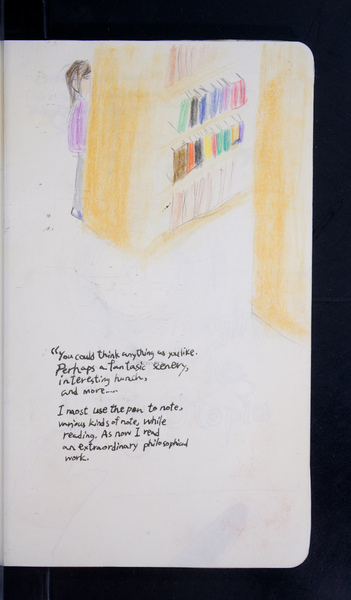 "You could think anything as you like.
Perhaps a fantasic scenery,
interesting hunch,
and more....
I most use the pen to note,
various kinds of note, while
reading. As now I read
an extraordinary philosophical
work.